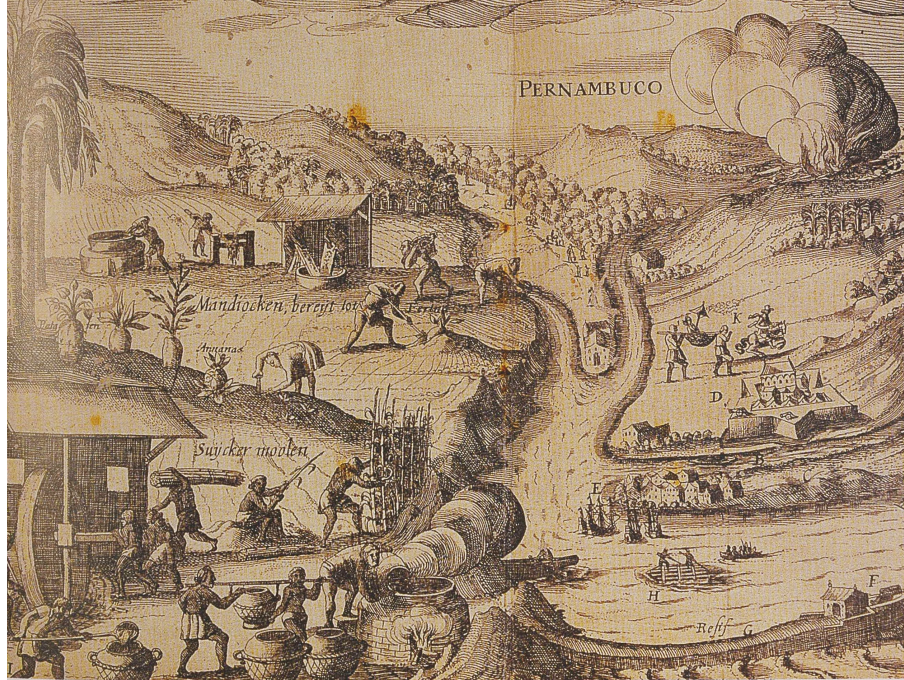 PERNAMBUCO
Mandiocken, bereyt tot
K
Annanas
D
Suycker moolen
B
C
E
F
H
Resif G